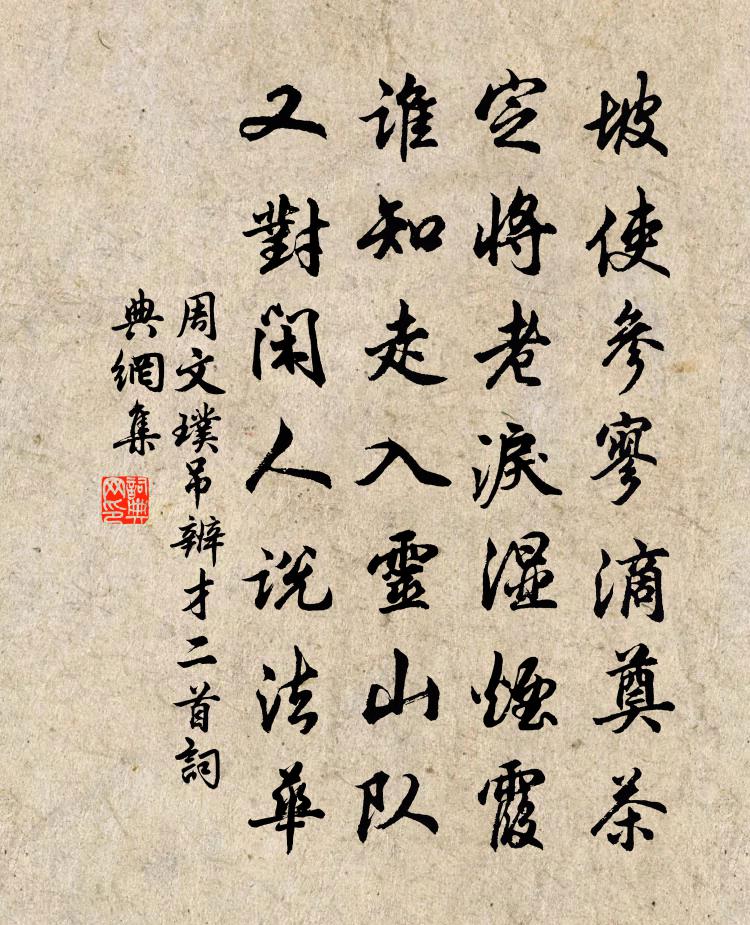 坡使參寥滴奠茶
定將老淚濕煙霞
誰知走入靈山队
又對閑人说法華
周文璞吊辨才二首詞
典網集
詞典
网印